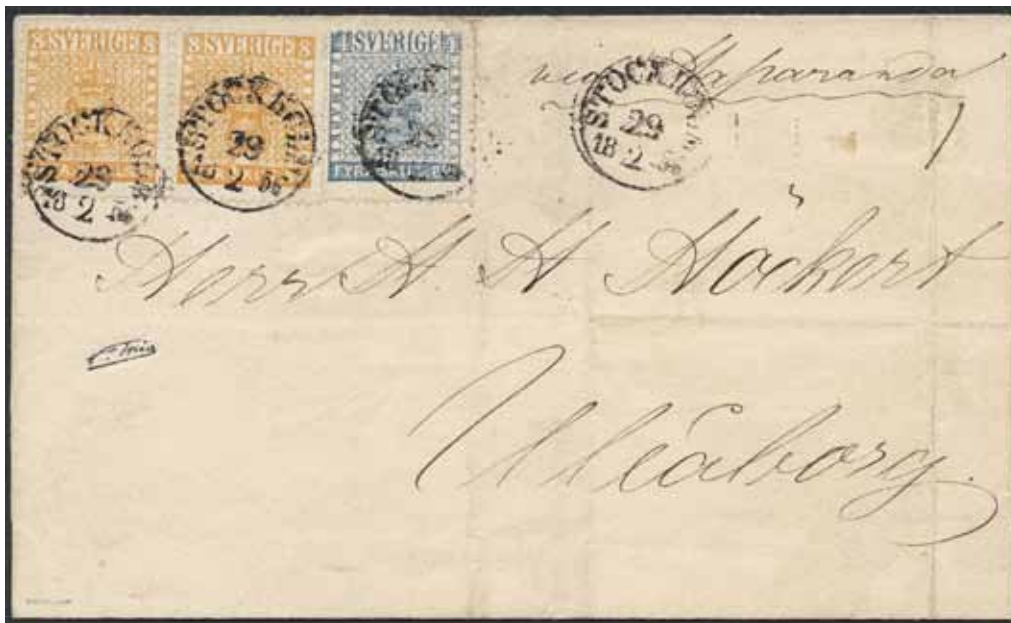 8 SVERIGE 8
8 SVERIGE 8
SVERIGE
STOCKHOLM
29
18 2 56
STOCKHOLM
29
2 56
STOCKHOLM
STOCKHOLM
29
18 2 56
via Haparanda
Herr A. A. Höckert
Uleåborg.